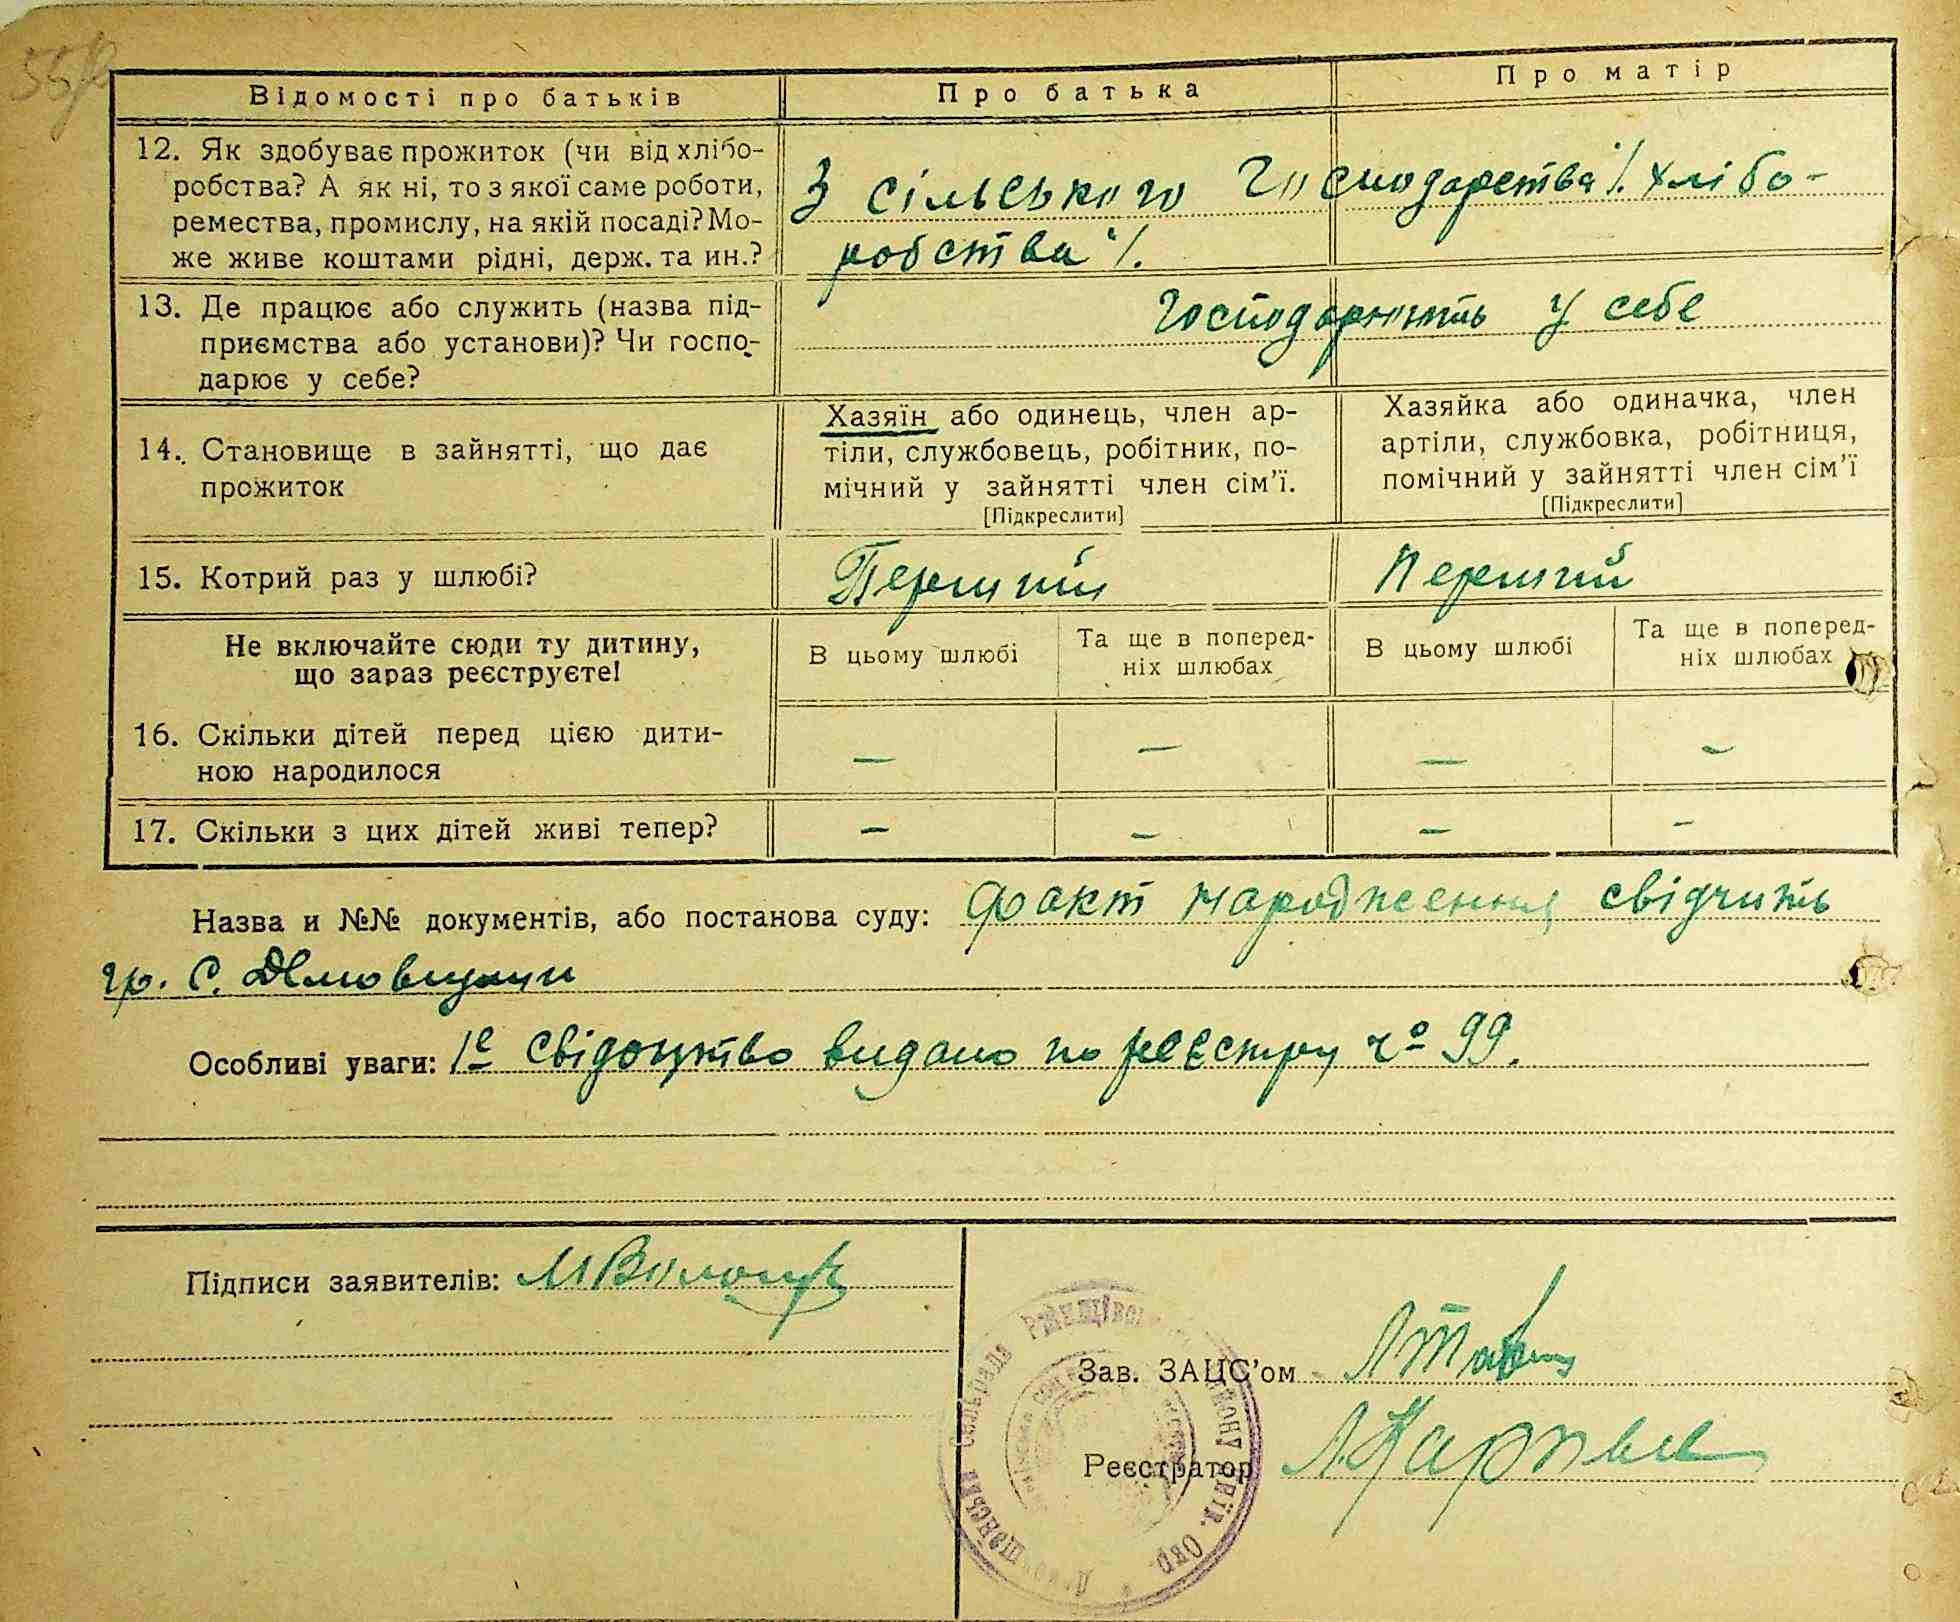 Відомості про батьків
Про батька
Про матір
12. Як здобуває прожиток (чи від хлібо-
робства? А як ні, то з якої саме роботи,
ремества, промислу, на якій посаді? Мо-
же живе коштами рідні, держ. та ин.?
З сільського господарства /. хлібо-
робства /.
13. Де працює або служить (назва під-
приємства або установи)? Чи госпо-
дарює у себе?
Господарюють у себе
14. Становище в зайнятті, що дає
прожиток
Хазяїн або одинець, член ар-
тіли, службовець, робітник, по-
мічний у зайнятті член сім'ї.
[Підкреслити]
Хазяйка або одиначка, член
артіли, службовка, робітниця,
помічний у зайнятті член сім'ї
[Підкреслити]
15. Котрий раз у шлюбі?
Перший
Перший
Не включайте сюди ту дитину,
що зараз реєструєте!
В цьому шлюбі
Та ще в поперед-
ніх шлюбах
В цьому шлюбі
Та ще в поперед-
ніх шлюбах
16. Скільки дітей перед цією дити-
ною народилося
— — — —
17. Скільки з цих дітей живі тепер?
— — — —
Назва и №№ документів, або постанова суду: Факт народження свідчить
гр. С.
Особливі уваги: 1е свідоцтво видано по реєстру чо 99.
Підписи заявителів:
Зав. ЗАЦС'ом
Реєстратор